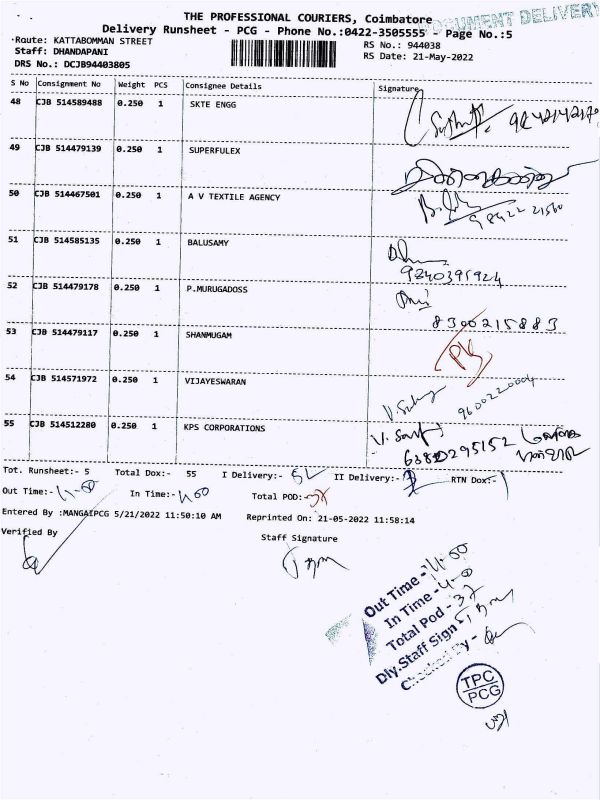 THE PROFESSIONAL COURIERS, Coimbatore
DOCUMENT DELIVERY
Delivery Runsheet - PCG - Phone No.:0422-3505555 - Page No.:5
Route: KATTABOMMAN STREET
RS No.: 944038
Staff: DHANDAPANI
RS Date: 21-May-2022
DRS No.: DCJB94403805
S No Consignment No Weight PCS Consignee Details Signature
48 CJB 514589488 0.250 1 SKTE ENGG
49 CJB 514479139 0.250 1 SUPERFULEX
50 CJB 514467501 0.250 1 A V TEXTILE AGENCY
51 CJB 514585135 0.250 1 BALUSAMY
9240391924
52 CJB 514479178 0.250 1 P.MURUGADOSS
8300215883
53 CJB 514479117 0.250 1 SHANMUGAM
54 CJB 514571972 0.250 1 VIJAYESWARAN
9600220004
55 CJB 514512280 0.250 1 KPS CORPORATIONS
Tot. Runsheet:- 5 Total Dox:- 55 I Delivery:- II Delivery:- RTN Dox:-
Out Time:- In Time:- Total POD:- 37
Entered By :MANGAIPCG 5/21/2022 11:50:10 AM Reprinted On: 21-05-2022 11:58:14
Verified By Staff Signature
Out Time -
In Time -
Total Pod - 37
Dly.Staff Sign -
Checked By -
TPC
PCG